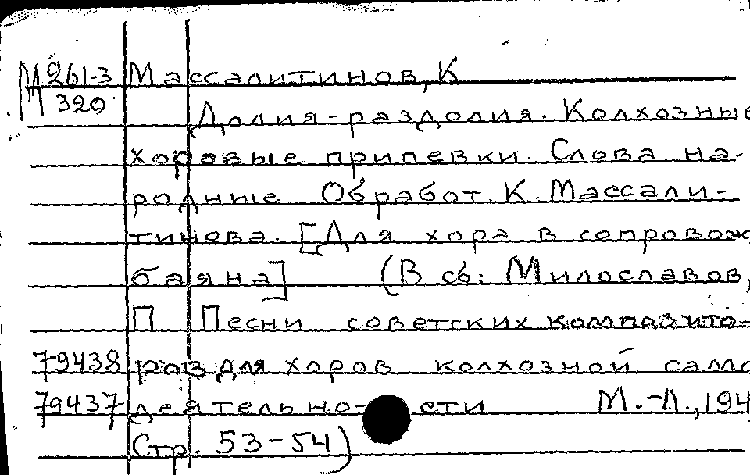 М261-3 Массалитинов, К
М 320
Долия-раздолия. Колхозные
хоровые припевки. Слова на-
родные Обработ. К. Массали-
тинова. [Для хора в сопровож
баяна] (В сб: Милославов,
П Песни советских композито-
79438 ров для хоров колхозной само
79437 деятельности М.-Л., 194
Стр. 53-54)